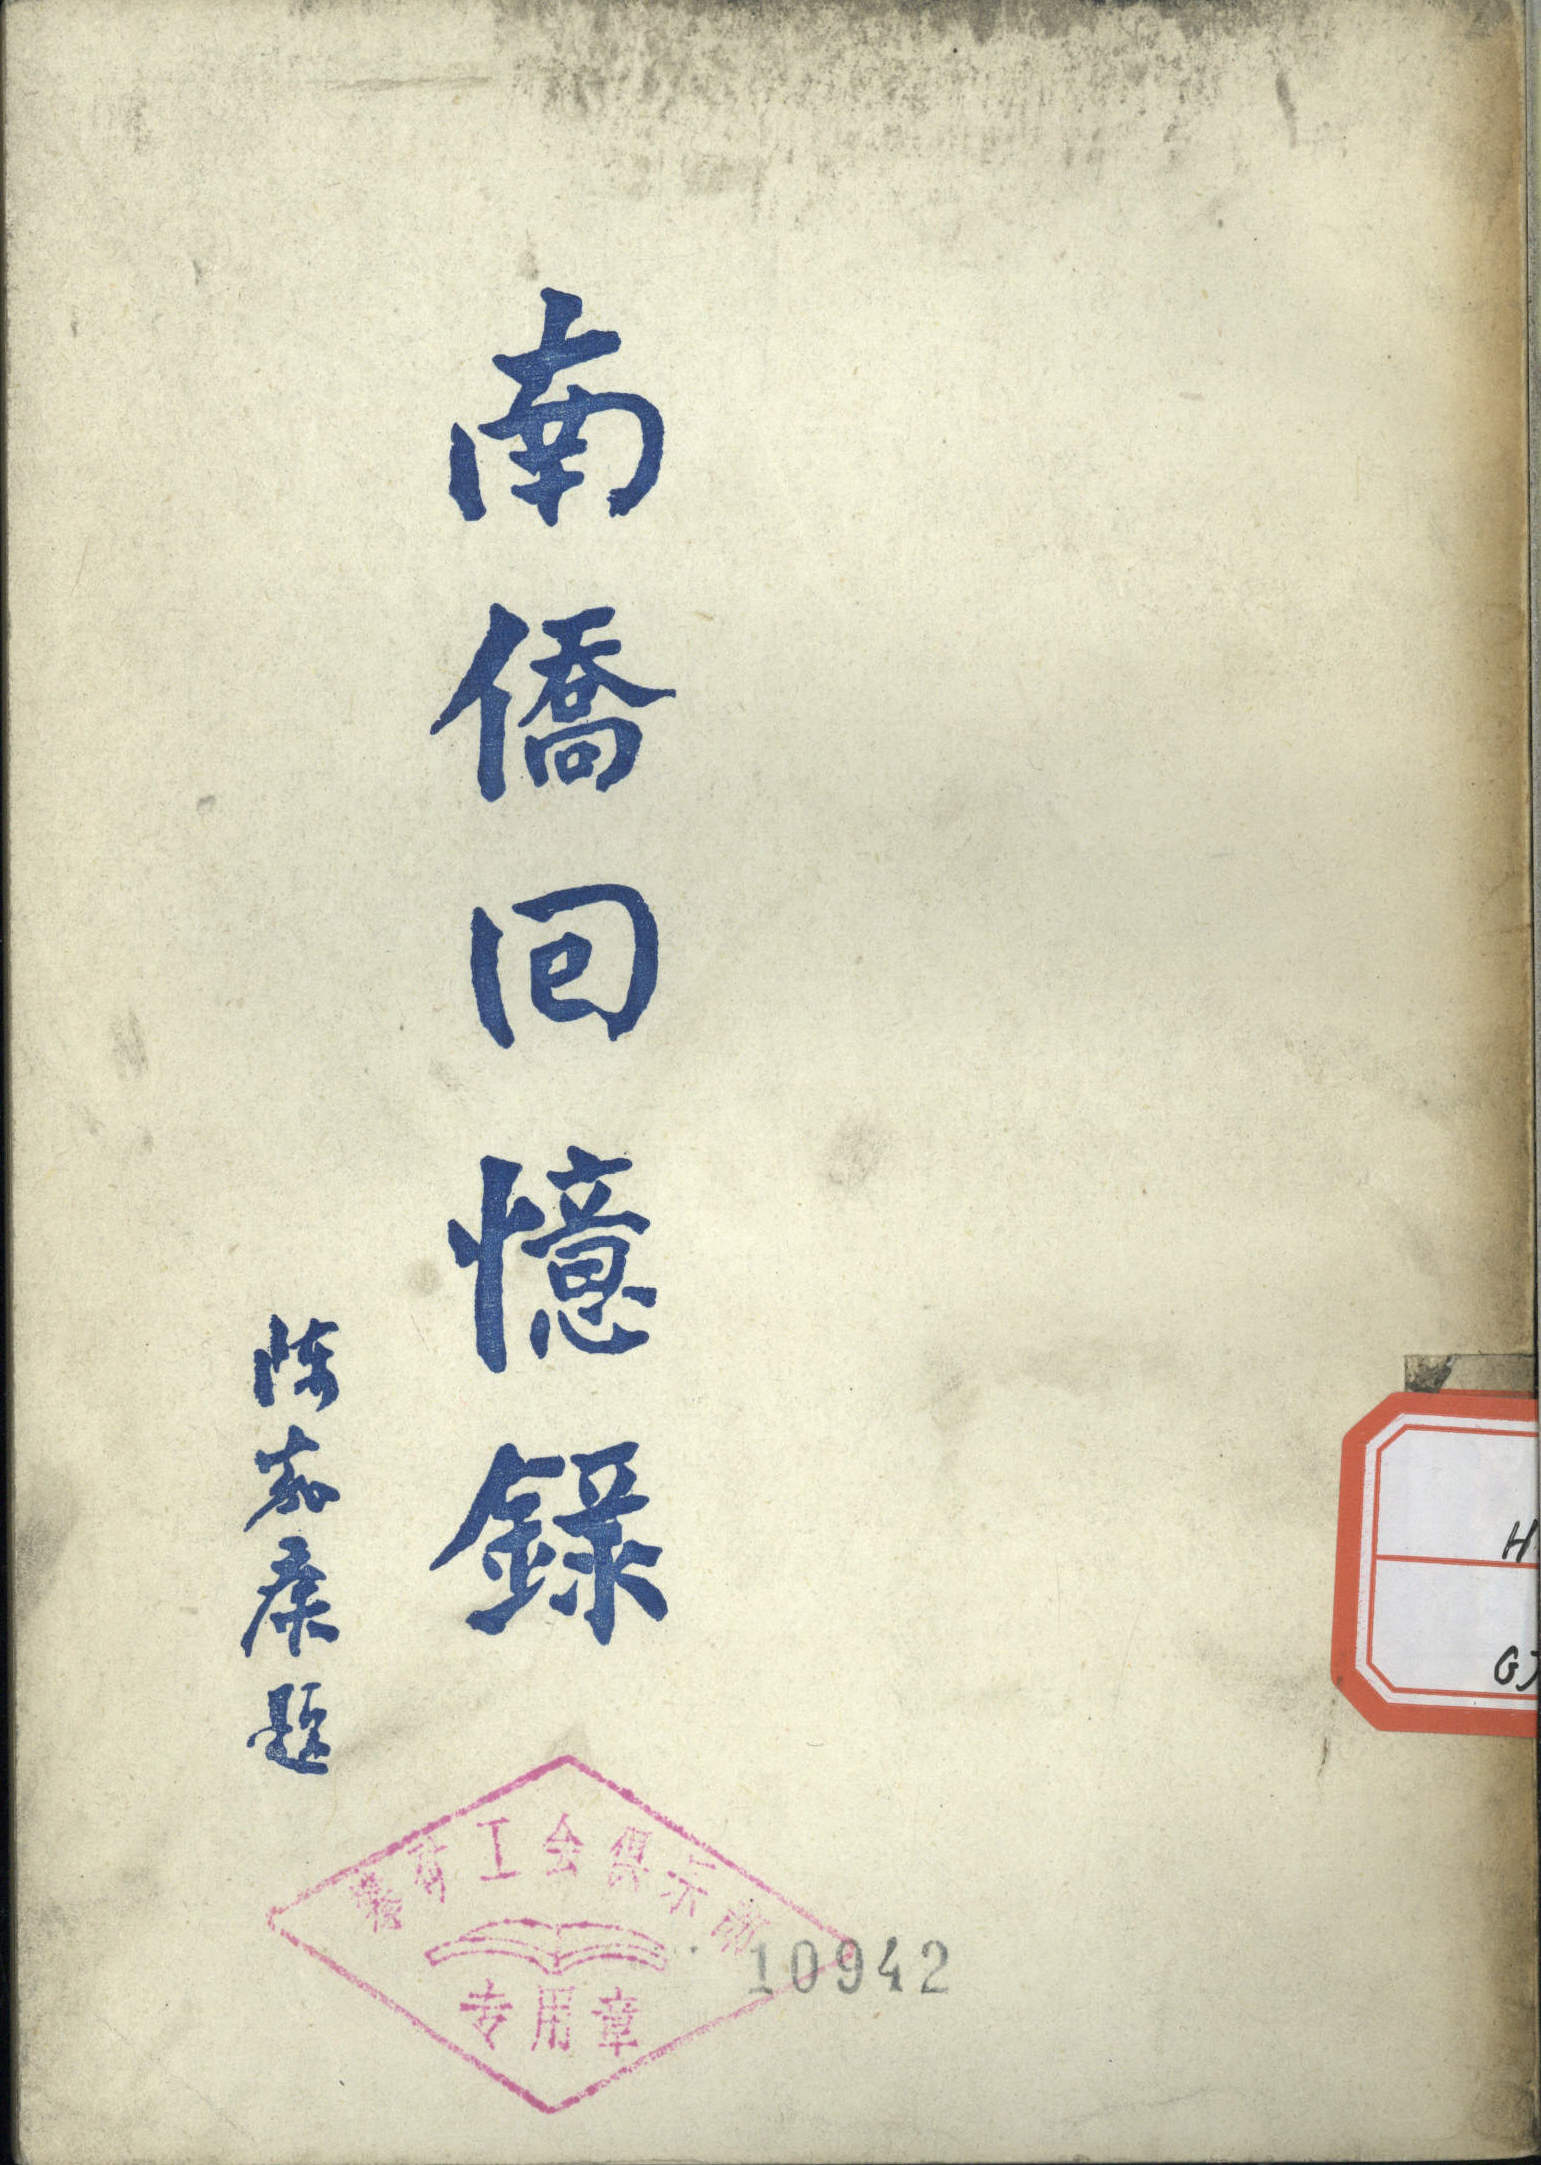 南僑回憶錄
陈嘉庚題
工会俱乐部
专用章
10942
H
GJ